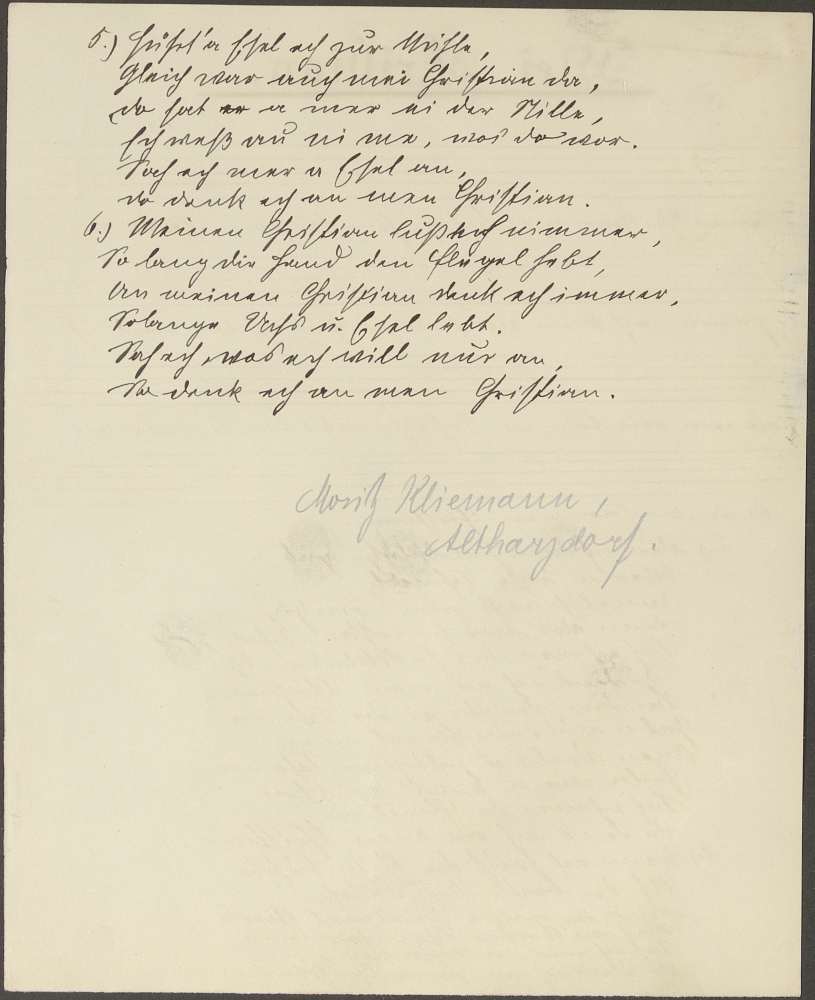 5.) Führt'a Esel ech zur Mühle,
Gleich war auch mei Christian da,
do hat er a mer ei der Stille,
Ech weß au ni me, wos do wor.
Sah ech mer a Esel an,
do denk ech an men Christian.
6.) Meinen Christian luß ech nimmer,
So lang die Hand den Flegel hebt,
An meinen Christian denk ech immer,
Solange Uchs u. Esel lebt.
Sah ech, wos ech will nur an,
Do denk ech an men Christian.
Moritz Kliemann,
Altharzdorf.